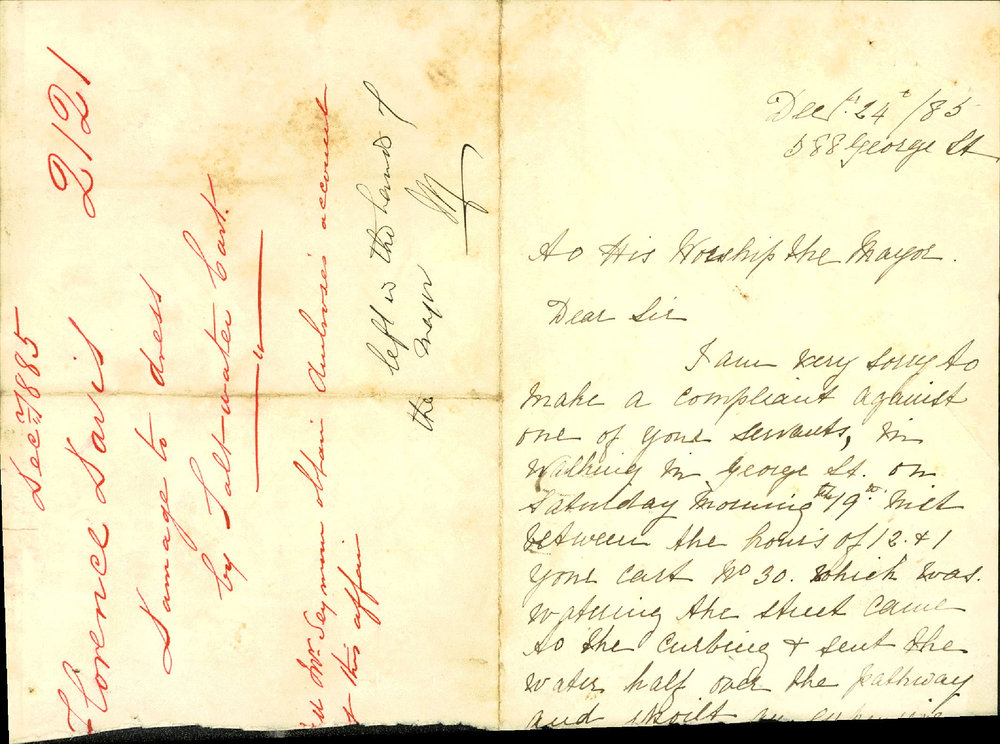 2121
Dec 1885
Florence Davis
Damage to dress
by Salt-water Cart.
Mr. Seymour obtain Ambrose's account
of this affair
left in the hands of
the Mayor
Dec 24 /85
588 George St
To His Worship the Mayor.
Dear Sir
I am very sorry to
make a compliant against
one of your servants, in
walking in George St. on
Saturday morning the 19th inst
between the hours of 12 & 1
your cart No 30. which was
watering the street came
to the curbing & sent the
water half over the pathway
and spoilt an